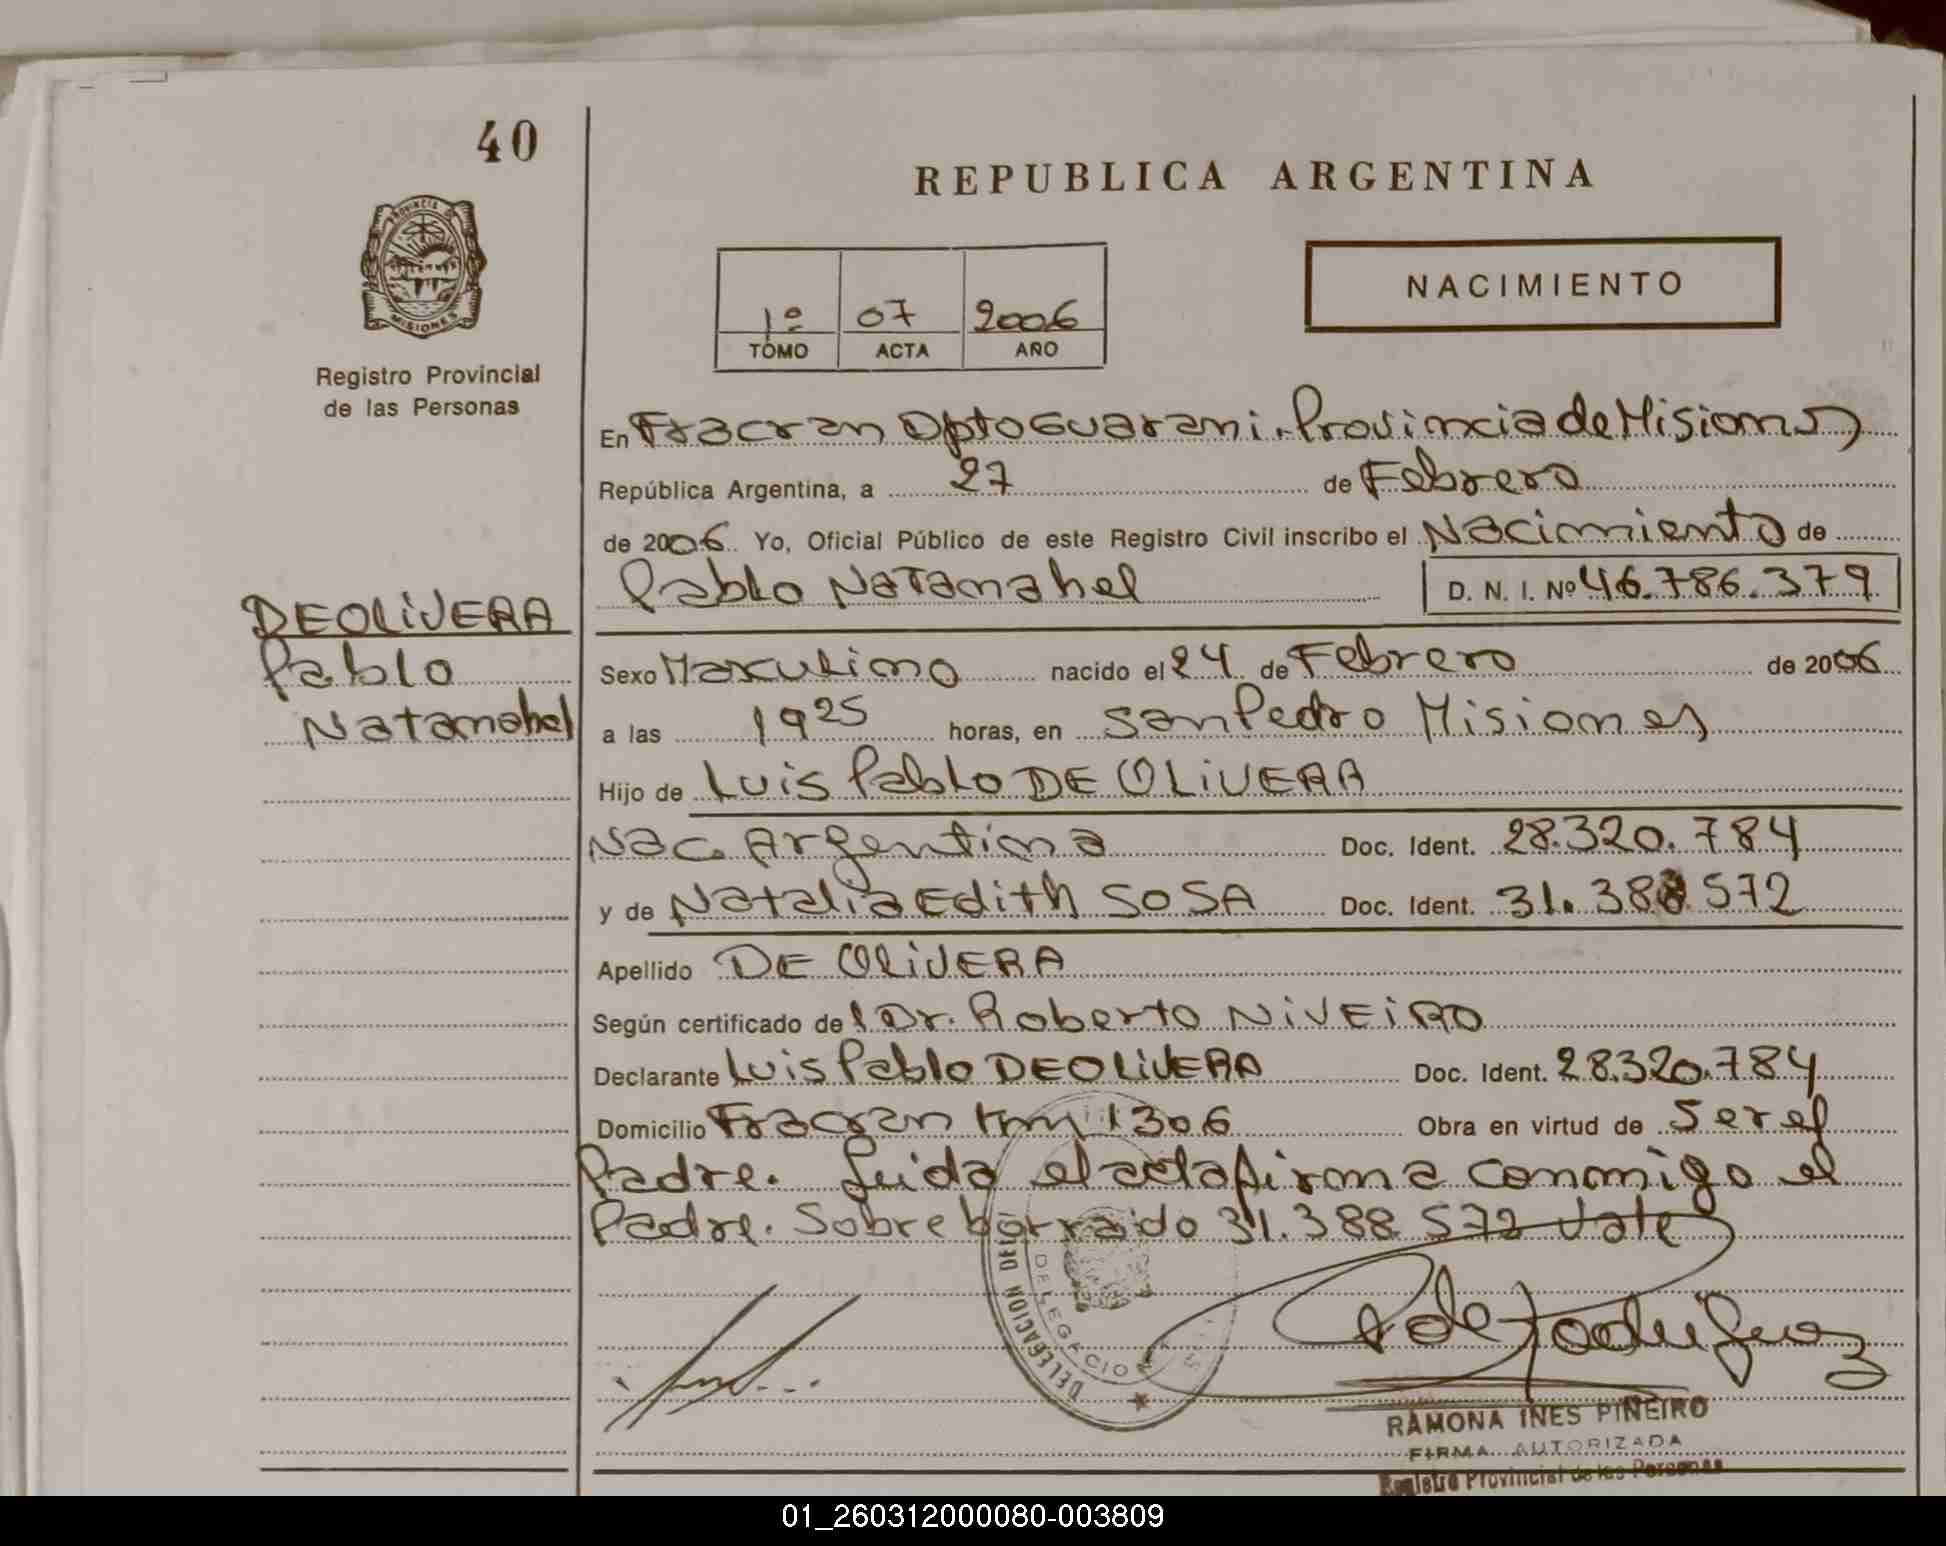 40
REPUBLICA ARGENTINA
PROVINCIA DE
MISIONES
Registro Provincial
de las Personas
NACIMIENTO
1º 07 2006
TOMO ACTA AÑO
En Fracran Dpto Guarani. Provincia de Misiones
República Argentina, a 27 de Febrero
de 2006 Yo, Oficial Público de este Registro Civil inscribo el Nacimiento de
Pablo Natanahel D. N. I. Nº 46.786.379
DE OLIVERA
Pablo
Natanahel
Sexo Masculino nacido el 24 de Febrero de 2006
a las 19 25 horas, en San Pedro Misiones
Hijo de Luis Pablo DE OLIVERA
Nac. Argentina Doc. Ident. 28.320.784
y de Natalia Edith SOSA Doc. Ident. 31.388 572
Apellido DE OLIVERA
Según certificado del Dr. Roberto NIVEIRO
Declarante Luis Pablo DE OLIVERA Doc. Ident. 28.320.784
Domicilio Fracran Km 1306 Obra en virtud de Ser el
Padre. Leida el acta firma conmigo el
Padre. Sobre borraido 31.388 572 Vale
DELEGACION DEL
DELEGACION
RAMONA INES PIÑEIRO
FIRMA AUTORIZADA
Registro Provincial de las Personas
01_260312000080-003809